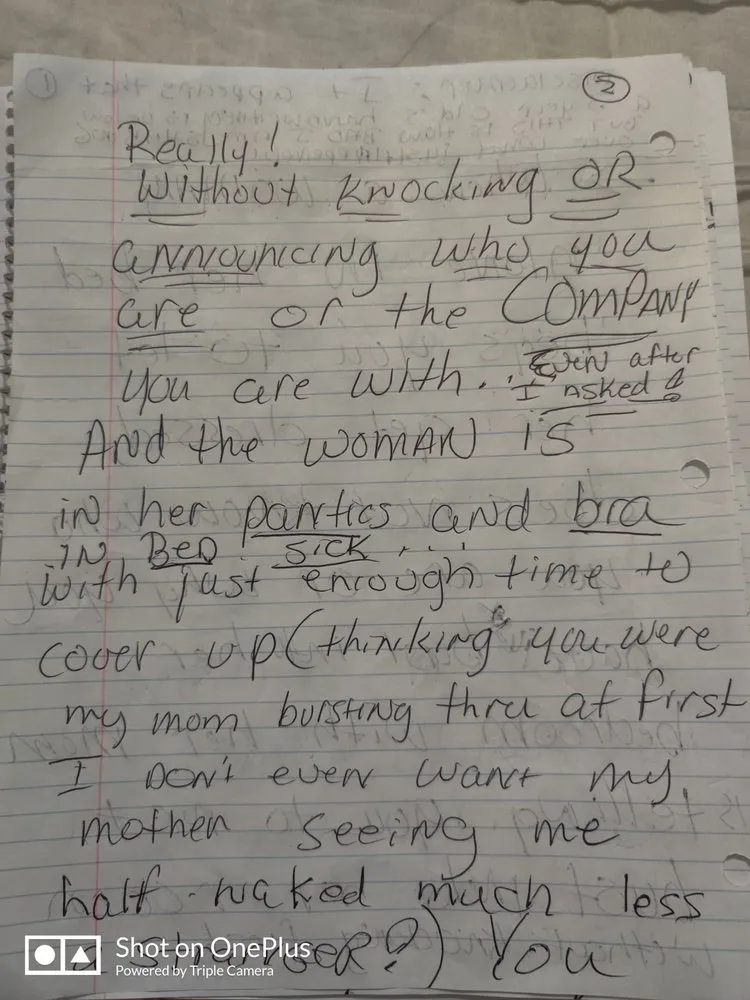 2
Really!
Without Knocking OR.
announcing who you
are or the COMPANY
you are with... Even after
I asked!
And the woman is
in her panties and bra
in Bed sick....
with just enough time to
cover up (thinking you were
my mom bursting thru at first
I Don't even want my
mother seeing me
half-naked much less
a stranger?) You
Shot on OnePlus
Powered by Triple Camera